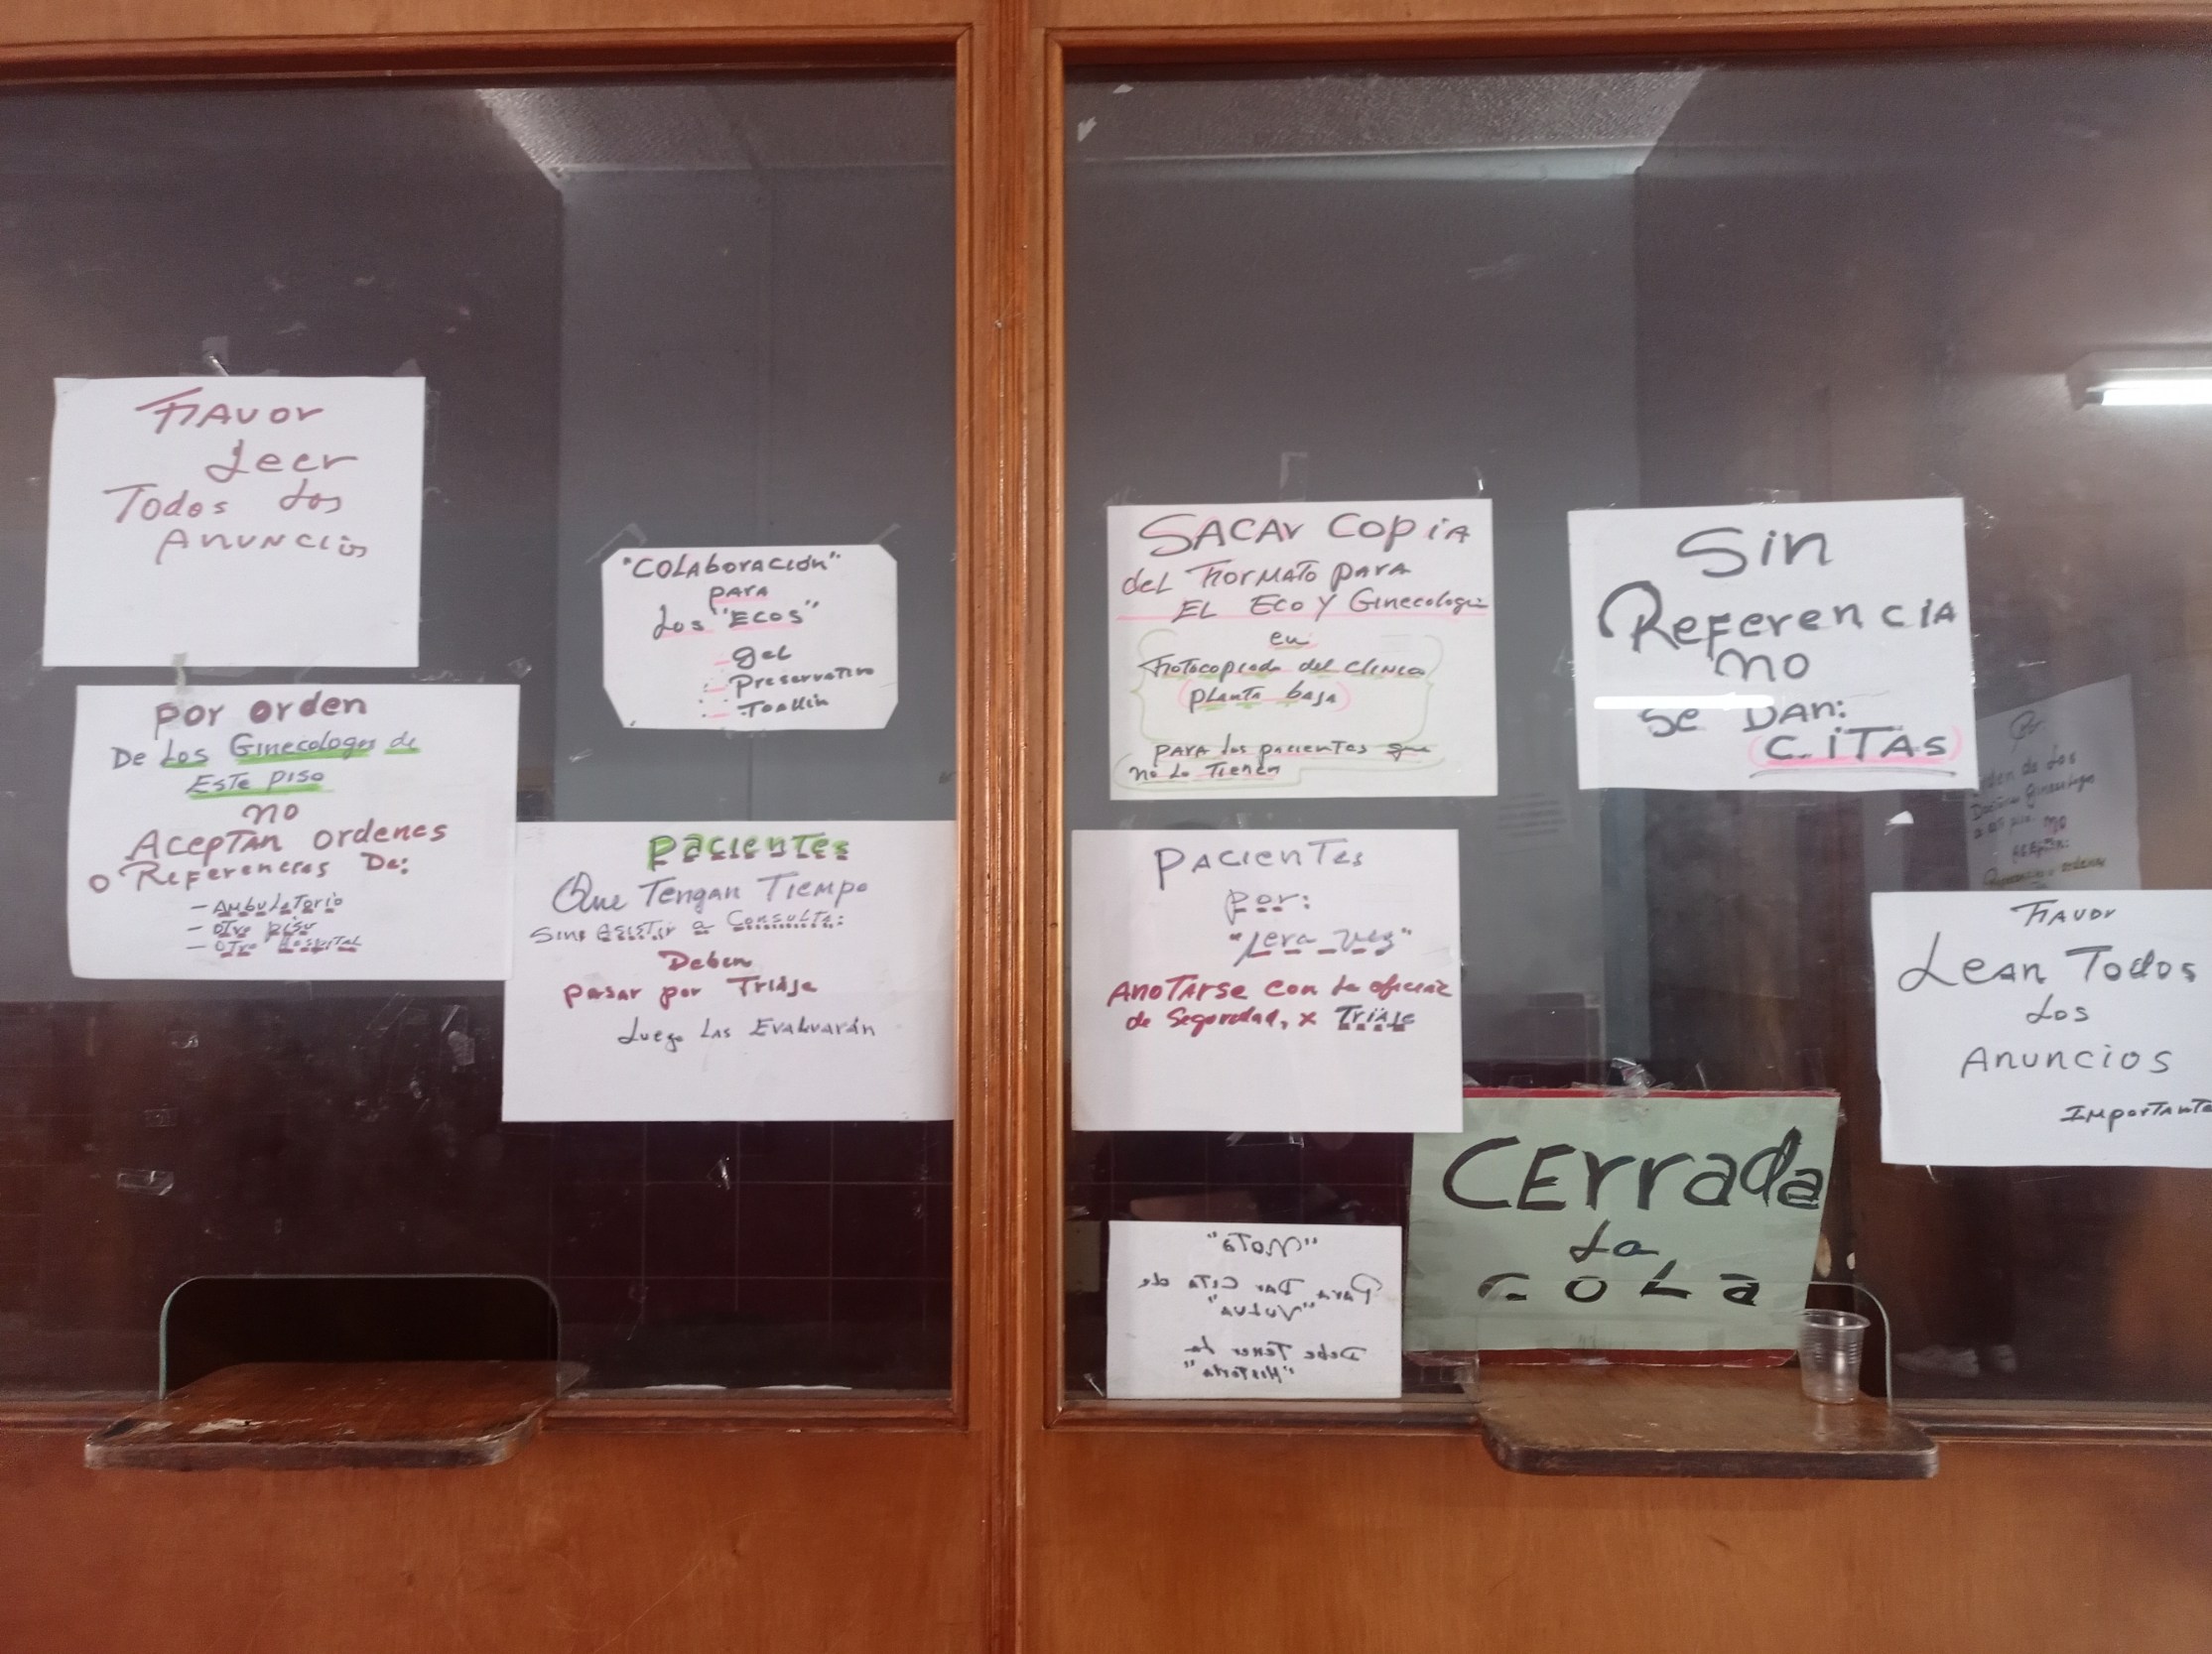 Favor
Leer
Todos Los
Anuncios
Por orden
De Los Ginecologos de
Este piso
no
Aceptan ordenes
o Referencias De:
- Ambulatorio
- otro piso
- otro Hospital
"Colaboración"
para
Los "Ecos"
- gel
- Preservativo
- Toallin
Pacientes
Que Tengan Tiempo
Sins asistir a Consulta:
Deben
pasar por Triaje
Luego Las Evaluarán
SACAr Copia
del Formato para
EL Eco y Ginecologia
en
Fotocopiado del clinico
(planta baja)
para los pacientes que
no Lo Tienen
Sin
Referencia
no
se DAn:
CITAS
Pacientes
Por:
"1era vez"
Anotarse con la oficial
de Seguridad, x Triaje
Por
orden de Los
Ginecologos
no
Aceptan:
Favor
Lean Todos
Los
Anuncios
Importante
CErrada
La
COLa
"Nota"
Para Dar Cita de
"Vulva"
Debe Tener La
"Historia"